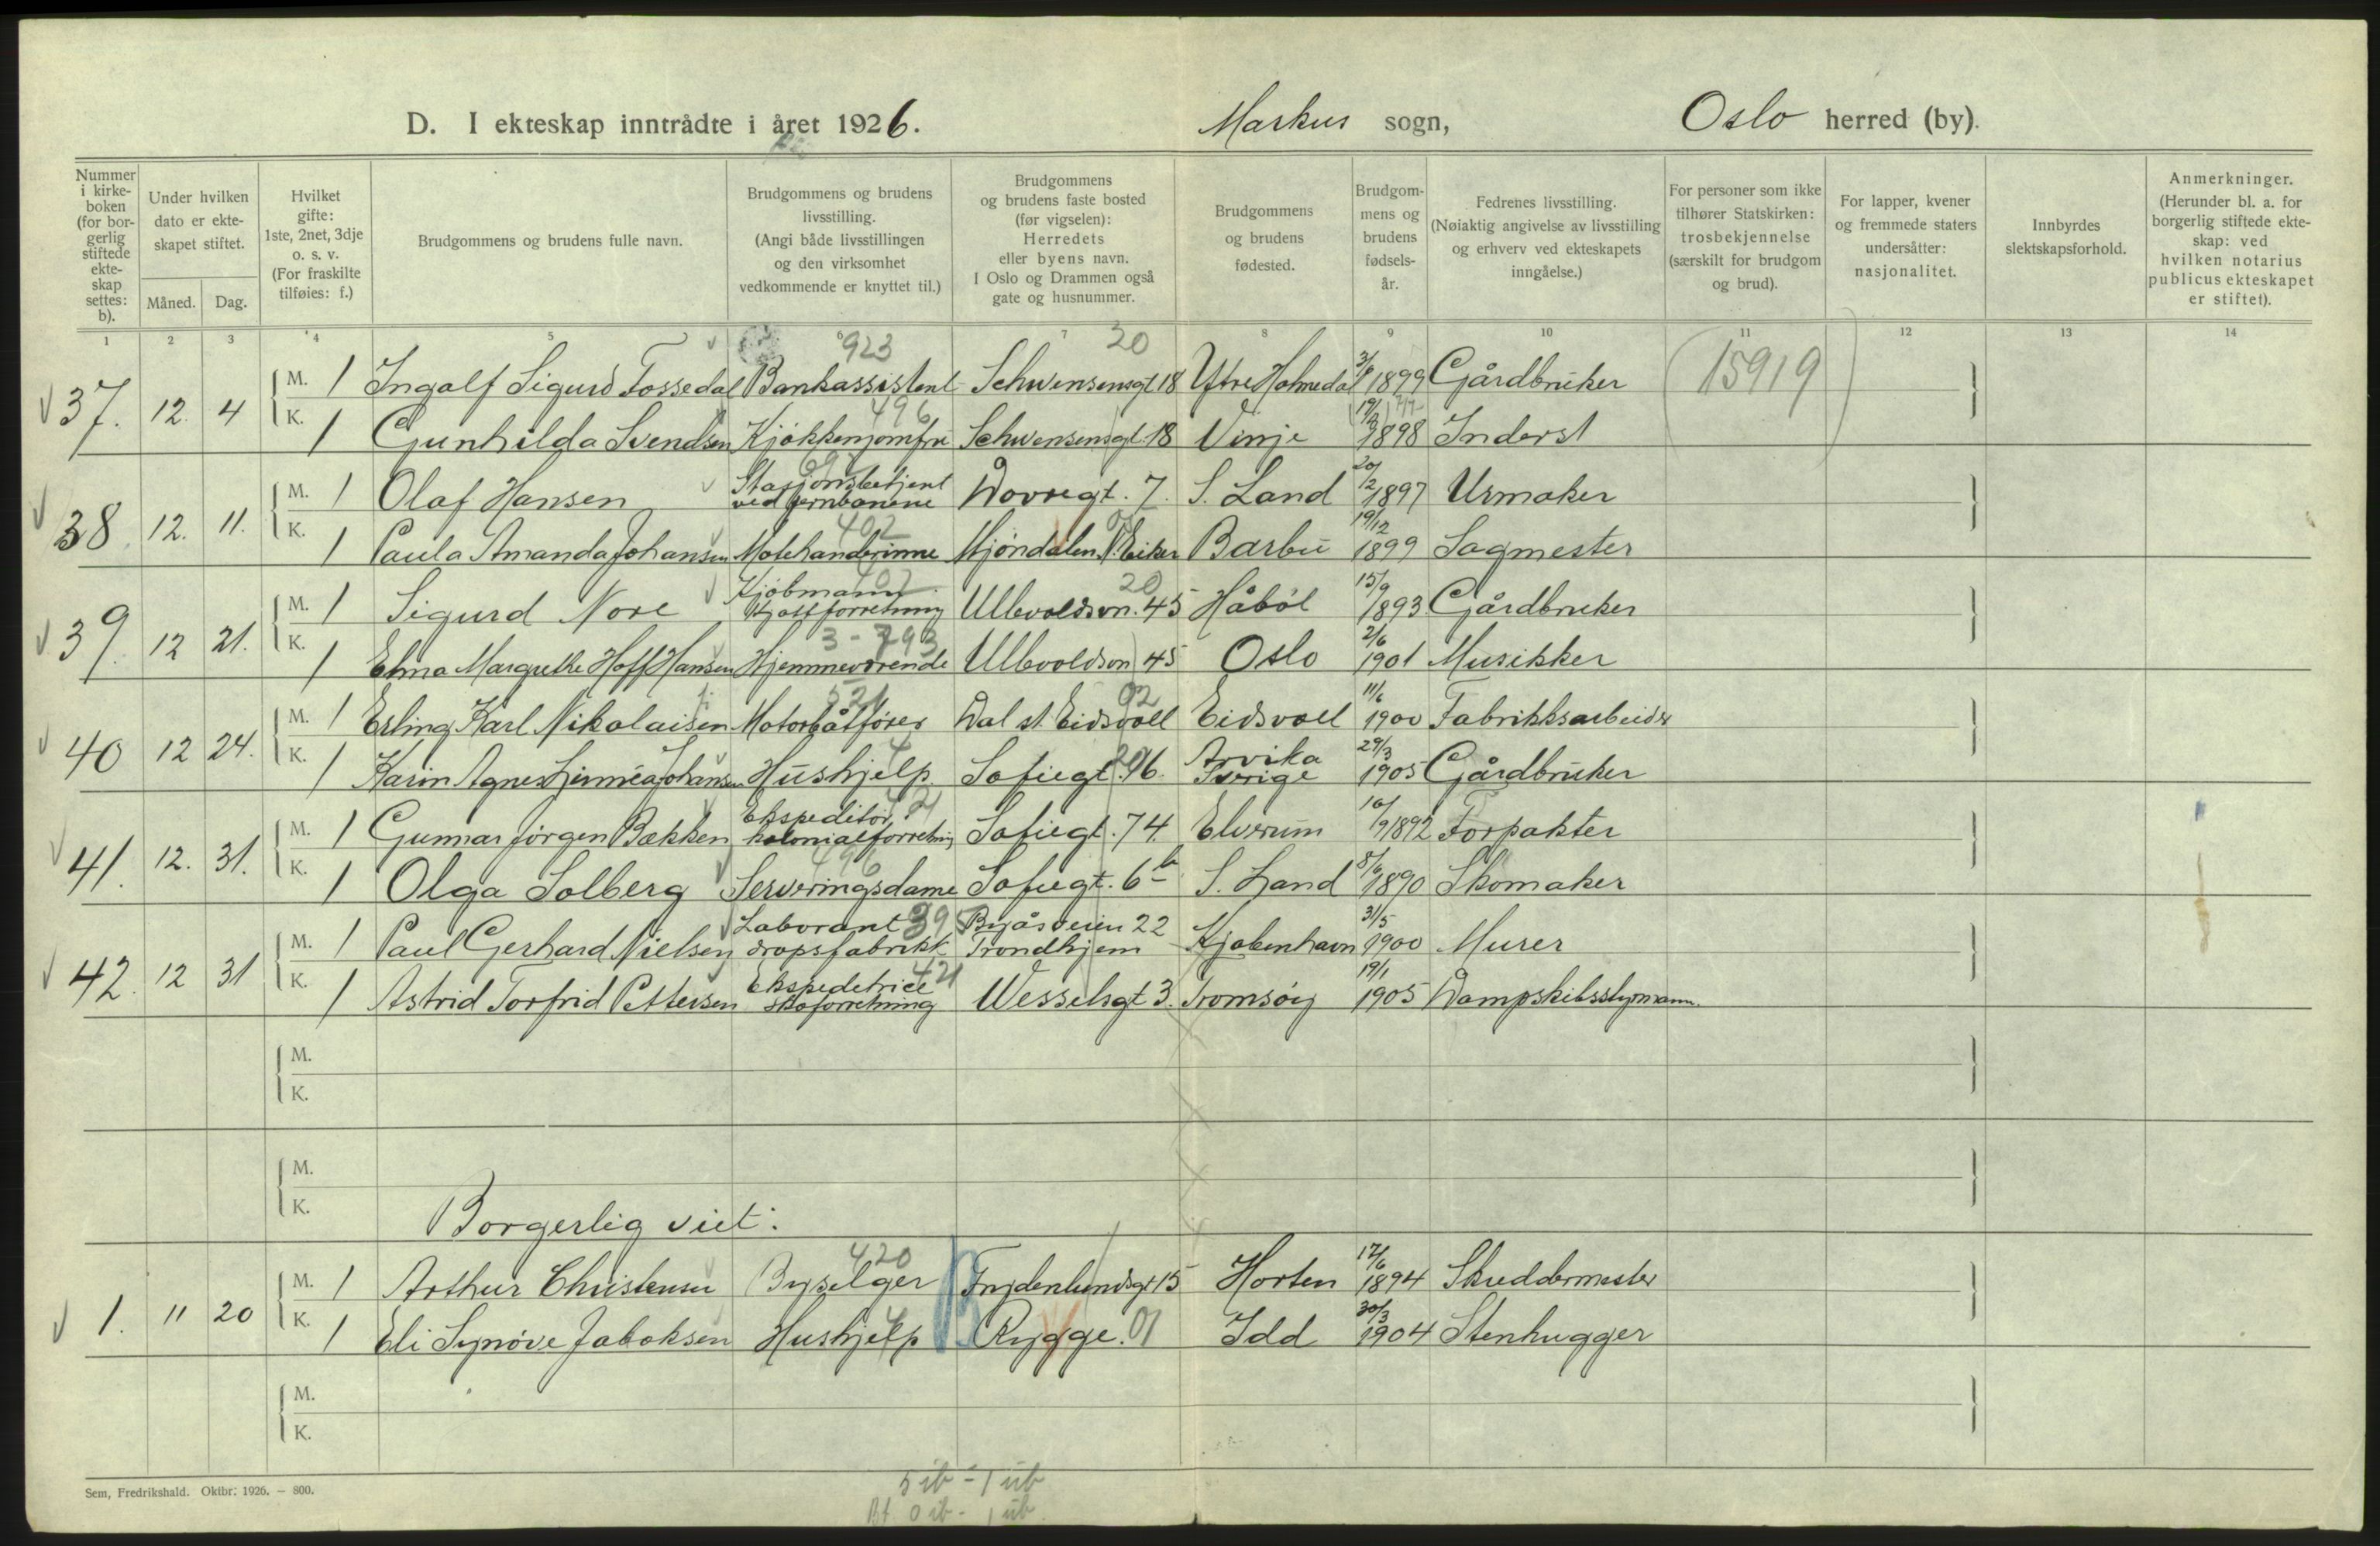 D. I ekteskap inntrådte i året 1926. Markus sogn, Oslo herred (by).
Nummer i kirke-boken (for bor-gerlig stiftede ekte-skap settes: b).
Under hvilken dato er ekte-skapet stiftet.
Måned. Dag.
Hvilket gifte: 1ste, 2net, 3dje o. s. v. (For fraskilte tilføies: f.)
Brudgommens og brudens fulle navn.
Brudgommens og brudens livsstilling. (Angi både livsstillingen og den virksomhet vedkommende er knyttet til.)
Brudgommens og brudens faste bosted (før vigselen): Herredets eller byens navn. I Oslo og Drammen også gate og husnummer.
Brudgommens og brudens fødested.
Brudgom-mens og brudens fødsels-år.
Fedrenes livsstilling. (Nøiaktig angivelse av livsstiilling og erhverv ved ekteskapets inngåelse.)
For personer som ikke tilhører Statskirken: trosbekjennelse (særskilt for brudgom og brud).
For lapper, kvener og fremmede staters undersåtter: nasjonalitet.
Innbyrdes slektskapsforhold.
Anmerkninger. (Herunder bl. a. for borgerlig stiftede ekte-skap: ved hvilken notarius publicus ekteskapet er stiftet).
1 2 3 4 5 6 7 8 9 10 11 12 13 14
923 20
37. 12. 4 M. 1 Ingolf Sigurd Fossedal Bankassistent Schwensensgt 18 Ytre Holmedal 1899 Gårdbruker (15919)
496
K. 1 Gunhilda Svendsen Kjøkkenjomfru Schwensensgt. 18 Vinje 1898 Inderst
38. 12. 11. M. 1 Olaf Hansen Stasjonsbetjent ved jernbanene Dovregt. 7. S. Land 20/2 1897 Urmaker
402
K. 1 Paula Amanda Johansen Motehandlerinne Mjøndalen N. Eiker Barbu 19/12 1899 Sagmester
402 20
39. 12 21. M. 1 Sigurd Nore Kjøbmann Kjøttforretning Ullevoldsvn. 45 Håbøl 15/9 1893 Gårdbruker
3-793
K. 1 Elna Margrethe Hoff Hansen Hjemmeværende Ullevoldsvn 45 Oslo 2/6 1901 Musikker
521 02
40 12 24. M. 1 Erling Karl Nikolaisen Motorbåtfører Dal st. Eidsvoll Eidsvoll 11/6 1900 Fabrikksarbeider
K. 1 Karin Agnes Linnéa Johansen Hushjelp Sofiegt. 76. Arvika Sverige 29/3 1905 Gårdbruker
421
41. 12. 31. M. 1 Gunnar Jørgen Bækken Ekspeditør kolonialforretning Sofiegt. 74. Elverum 16/9 1892 Forpakter
496
K. 1 Olga Solberg Serveringsdame Sofiegt. 6b S. Land 1890 Skomaker
395
42. 12 31 M. 1 Paul Gerhard Nielsen Laborant dropsfabrikk Byåsveien 22 Trondhjem Kjøbenhavn 31/5 1900 Murer
421
K. 1 Astrid Torfrid Pettersen Ekspeditrice skoforretning Wesselsgt 3. Tromsøy 19/1 1905 Dampskibsstyrmann.
M.
K.
M.
K.
Borgerlig viet:
420
1. 11 20 M. 1 Arthur Christensen Byselger Frydenlundsgt 15 Horten 17/6 1894 Skreddermester
K. 1 Eli Synøve Jakoksen Hushjelp Rygge. 01 Idd 30/3 1904 Stenhugger
M.
K.
Sem, Fredrikshald. Oktbr. 1926. — 800.
5 ib - 1 ub
Bf 0 ib - 1 ub.